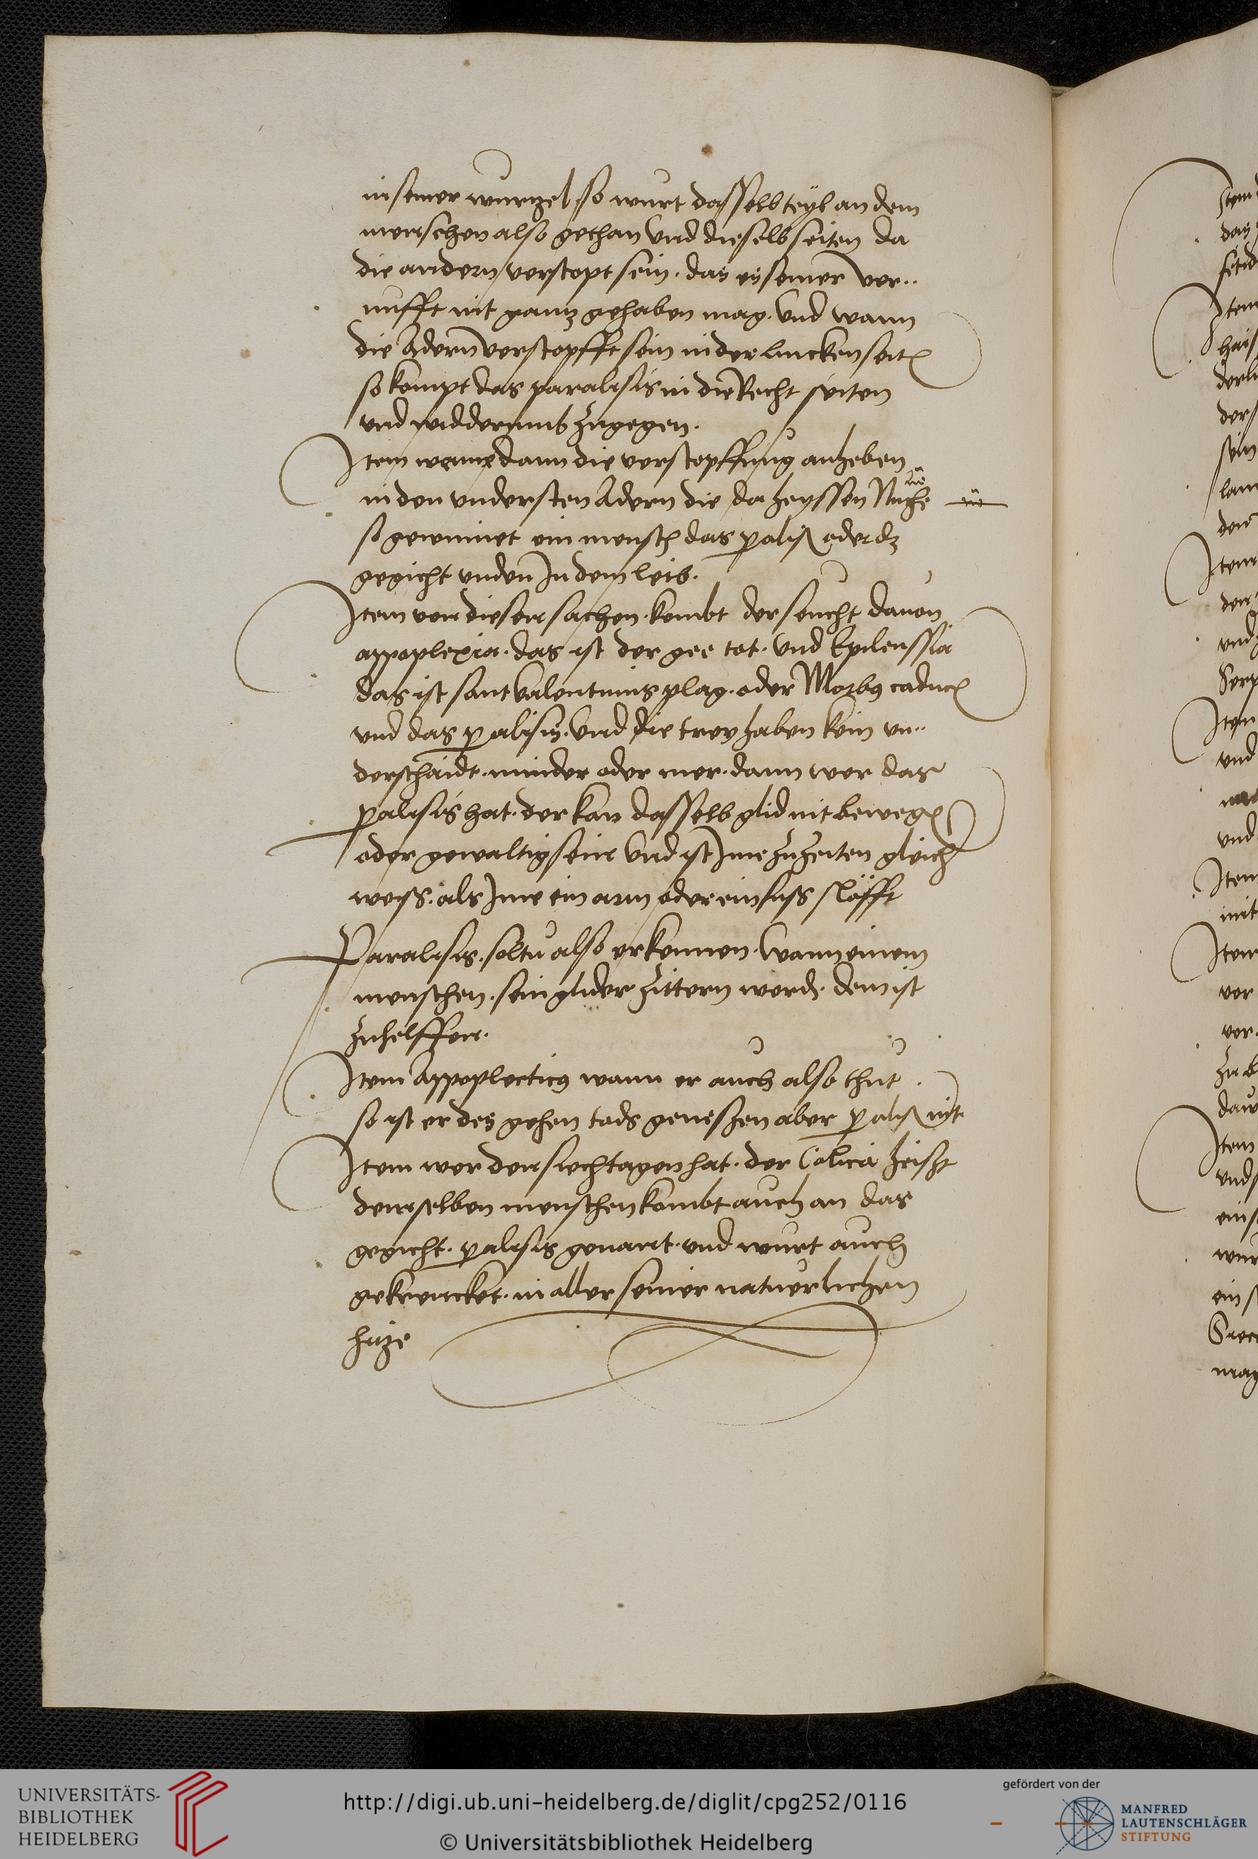 in seiner wurtzel, so wurt dasselb teyl an dem
menschen also gethan vnd dieselb seiten da
die andern verstopt sein. das es seiner ver„
nufft nit gantz gehaben mag. Vnd wann
die Adern verstopfft sein in der lincken seitē
so kompt das paralisis in die Recht seiten
vnd widderumb zugegen.
Item wann dann die verstopffung anheben
in den vndersten Adern die da heyssen
so gewinnet ein mensch das paliß oder dz
gegicht vnden In dem leib.
Item von diesen sachen. kombt der seucht dauon
appoplexia. das ist der gee tot. vnd Epilenssia
das ist sant Valentinus plag. oder Morbꝫ caducꝰ
vnd das palisis. Vnd die trey haben kein vn„
derschaidt. minder oder mer. dann wer das
palisis hat. der kan dasselb glid nit bewegē
oder gewaltig sein Vnd ist Ime zu zeiten gleich
weiß. als Ime ein arm oder ein fuss slöfft
Paralisis. soltu also erkennen. Wann einem
menschen. sein glider zittern werdē. dem ist
zuhelffen.
Item Appoplecticꝫ wann er auch also thut
so ist er des gehen tods geneßen aber paliß nit
Item wer den siechtagen hat. der Colica heißt
demselben menschen kombt auch an das
gegicht. palisis genant. vnd wurt auch
gekrencket. in aller seiner naturlichen
hitze
UNIVERSITÄTS-
BIBLIOTHEK
HEIDELBERG
http://digi.ub.uni-heidelberg.de/diglit/cpg252/0116
© Universitätsbibliothek Heidelberg
gefördert von der
MANFRED
LAUTENSCHLÄGER
STIFTUNG